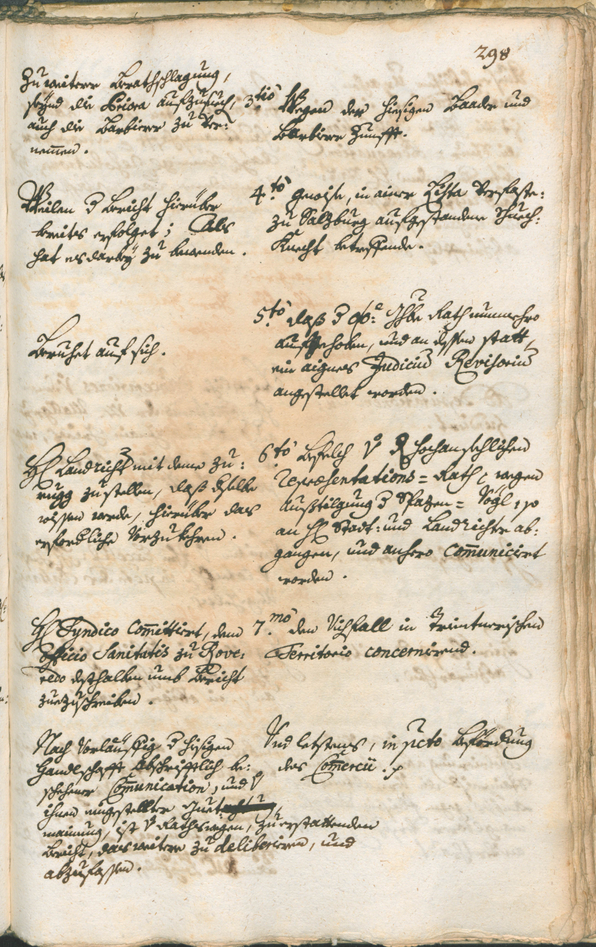 298
Zu weiterer Berathschlagung,
seynd die Priora aufzusuech,
auch die Barbierer zu ver-
nemmen.
3tio Wegen der hiesigen Baader und
Barbierer Zunfft.
Weilen d Bericht hierüber
bereits erfolget; Als
hat es darbey zu bewenden.
4to gewise, in ainer Lista verfaste:
zu Salzburg aufgestandene Schuech-
Knecht betreffende.
Beruhet auf sich.
5to daß d Rath nunmehro
aufgehoben, und an dessen statt,
ein aignes Judiciu Revisoriu
angestellet worden.
H Landricht mit deme zu-
rugg zustellen, daß dselbe
wissen werde, hierüber das
erforderliche vorzukehren.
6to Befelch V Hochansehlichen
Repræsentations= Rath, wegen
Außtilgung d Spazen= Vögl
an H Stadt- und Landrichter ab-
gangen, und anhero com̄unicirt
worden.
H Syndico com̄ittirt, dem
Officio Sanitatis zu Rove-
redo deßhalben umb Bericht
zuezuschreiben.
7mo den Vichfall in Trientnerischen
Territorio concernirend.
Nach vorläuffig d hiesigen
Handlschafft abschrifftlich be-
schehener Com̄unication, und V
ihnen eingestellter Guet
mainung, ist V Rathswegen, zu erstattenden
Bericht, das weitere zu deliberiren, und
abzufassen.
Und letstens, in pcto Beförderung
des Com̄ercii.